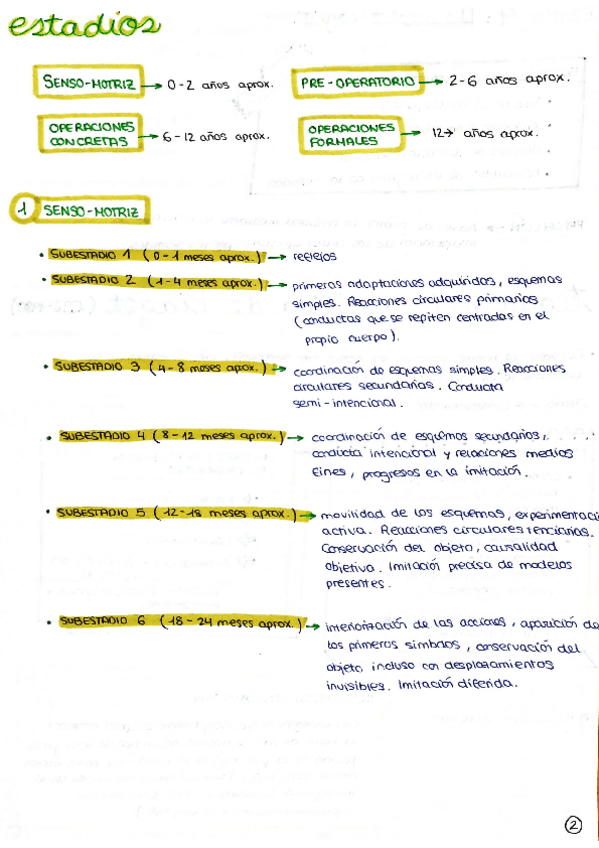 estadios
SENSO-MOTRIZ → 0-2 años aprox.
PRE-OPERATORIO → 2-6 años aprox.
OPERACIONES
CONCRETAS → 6-12 años aprox.
OPERACIONES
FORMALES → 12→ años aprox.
1 SENSO-MOTRIZ
• SUBESTADIO 1 (0-1 meses aprox.) → reflejos
• SUBESTADIO 2 (1-4 meses aprox.) → primeras adaptaciones adquiridas, esquemas
simples. Reacciones circulares primarias
(conductas que se repiten centradas en el
propio cuerpo).
• SUBESTADIO 3 (4-8 meses aprox.) → coordinación de esquemas simples. Reacciones
circulares secundarias. Conducta
semi-intencional.
• SUBESTADIO 4 (8-12 meses aprox.) → coordinación de esquemas secundarios,
conducta intencional y relaciones medios
fines, progresos en la imitación.
• SUBESTADIO 5 (12-18 meses aprox.) → movilidad de los esquemas, experimentaci
activa. Reacciones circulares terciarias.
Conservación del objeto, causalidad
objetiva. Imitación precisa de modelos
presentes.
• SUBESTADIO 6 (18-24 meses aprox.) → interiorización de las acciones, aparición de
los primeros símbolos, conservación del
objeto incluso con desplazamientos
invisibles. Imitación diferida.
2